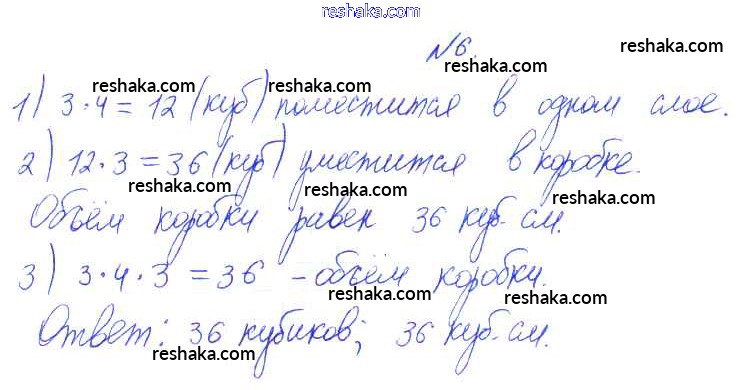 reshaka.com
№6. reshaka.com
reshaka.com reshaka.com
1) 3·4=12 (куб) поместится в одном слое.
reshaka.com reshaka.com
2) 12·3=36 (куб) уместится в коробке.
reshaka.com reshaka.com
Объём коробки равен 36 куб. см.
reshaka.com
3) 3·4·3=36 - объём коробки.
reshaka.com reshaka.com
Ответ: 36 кубиков; 36 куб. см.
reshaka.com reshaka.com